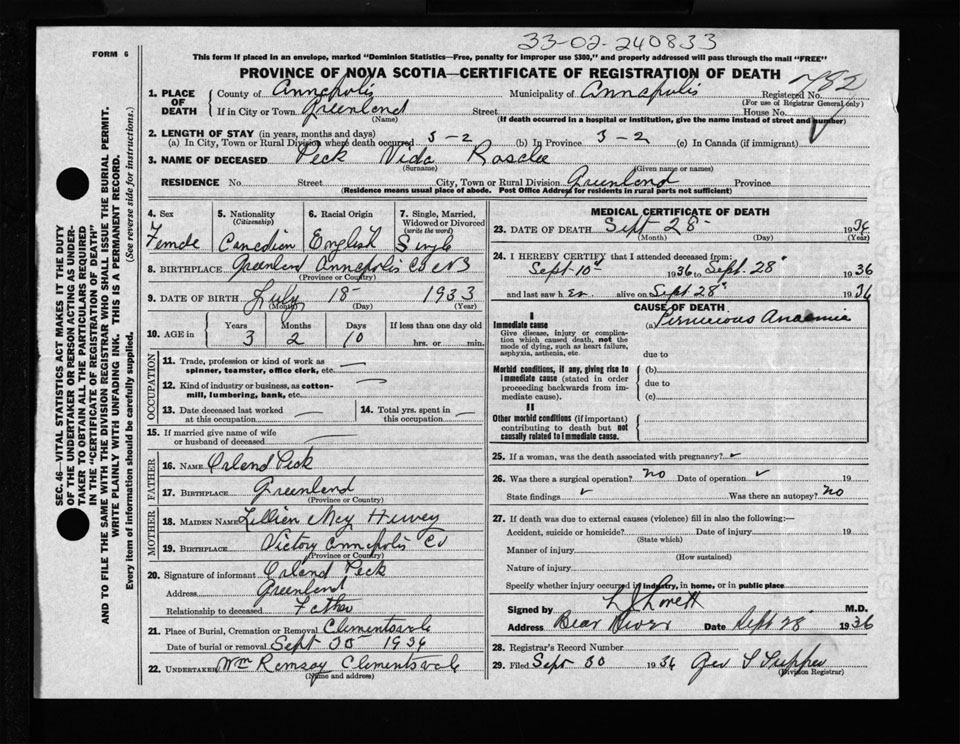 33-02-240833
FORM 6
This form if placed in an envelope, marked "Dominion Statistics—Free, penalty for improper use $300," and properly addressed will pass through the mail "FREE"
PROVINCE OF NOVA SCOTIA—CERTIFICATE OF REGISTRATION OF DEATH
782
1. PLACE OF DEATH
County of Annapolis Municipality of Annapolis Registered No.
(For use of Registrar General only)
If in City or Town Greenland Street House No.
(Name) (If death occurred in a hospital or institution, give the name instead of street and number)
2. LENGTH OF STAY (in years, months and days)
(a) In City, Town or Rural Division where death occurred 3-2 (b) In Province 3-2 (c) In Canada (if immigrant)
3. NAME OF DECEASED Peck Vida Rosclee
(Surname) (Given name or names)
RESIDENCE No. Street City, Town or Rural Division Greenland Province
(Residence means usual place of abode. Post Office Address for residents in rural parts not sufficient)
4. Sex 5. Nationality (Citizenship) 6. Racial Origin 7. Single, Married, Widowed or Divorced (write the word)
Female Canadian English Single
8. BIRTHPLACE Greenland Annapolis Co NS
(Province or Country)
9. DATE OF BIRTH July 18 1933
(Month) (Day) (Year)
10. AGE in Years Months Days If less than one day old
3 2 10 hrs. or min.
OCCUPATION
11. Trade, profession or kind of work as spinner, teamster, office clerk, etc. —
12. Kind of industry or business, as cotton-mill, lumbering, bank, etc. —
13. Date deceased last worked at this occupation — 14. Total yrs. spent in this occupation —
15. If married give name of wife or husband of deceased —
FATHER
16. NAME Orland Peck
17. BIRTHPLACE Greenland
(Province or Country)
MOTHER
18. MAIDEN NAME Lillian May Huvey
19. BIRTHPLACE Victory Annapolis Co
(Province or Country)
20. Signature of informant Orland Peck
Address Greenland
Relationship to deceased Father
21. Place of Burial, Cremation or Removal Clementsvale
Date of burial or removal Sept 30 1936
22. UNDERTAKER Wm Ramsay Clementsvale
(Name and address)
MEDICAL CERTIFICATE OF DEATH
23. DATE OF DEATH Sept 28 1936
(Month) (Day) (Year)
24. I HEREBY CERTIFY that I attended deceased from:
Sept 10 1936 to Sept. 28 1936
and last saw h er alive on Sept 28 1936
CAUSE OF DEATH
I
Immediate cause (a) Pernicious Anaemia
Give disease, injury or complication which caused death, not the mode of dying, such as heart failure, asphyxia, asthenia, etc.
due to
Morbid conditions, if any, giving rise to immediate cause (stated in order proceeding backwards from immediate cause).
(b)
due to
(c)
II
Other morbid conditions (if important) contributing to death but not causally related to immediate cause.
25. If a woman, was the death associated with pregnancy?
26. Was there a surgical operation? no Date of operation 19
State findings Was there an autopsy? no
27. If death was due to external causes (violence) fill in also the following:—
Accident, suicide or homicide? Date of injury 19
(State which)
Manner of injury
(How sustained)
Nature of injury
Specify whether injury occurred in industry, in home, or in public place
Signed by L J Lovett M.D.
Address Bear River Date Sept 28 1936
28. Registrar's Record Number
29. Filed Sept 30 1936 Geo S Tupper
(Division Registrar)
SEC. 46—VITAL STATISTICS ACT MAKES IT THE DUTY
OF THE UNDERTAKER OR PERSON ACTING AS UNDER-
TAKER TO OBTAIN ALL THE PARTICULARS REQUIRED
IN THE "CERTIFICATE OF REGISTRATION OF DEATH"
AND TO FILE THE SAME WITH THE DIVISION REGISTRAR WHO SHALL ISSUE THE BURIAL PERMIT.
WRITE PLAINLY WITH UNFADING INK. THIS IS A PERMANENT RECORD.
Every item of information should be carefully supplied. (See reverse side for instructions.)